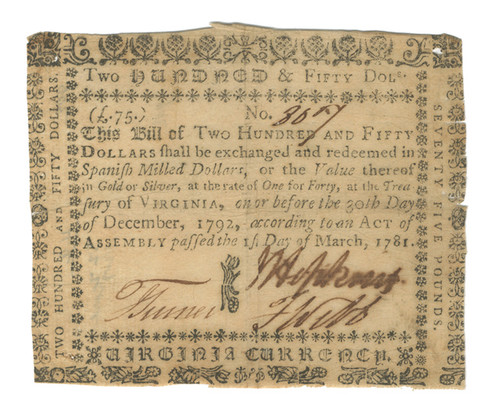 TWO HUNDRED & FIFTY DOLs.
(£.75.) No. 3657
This Bill of TWO HUNDRED AND FIFTY
DOLLARS shall be exchanged and redeemed in
Spanish Milled Dollars, or the Value thereof
in Gold or Silver, at the rate of One for Forty, at the Trea-
sury of VIRGINIA, on or before the 30th Day
of December, 1792, according to an ACT of
ASSEMBLY passed the 1st Day of March, 1781.
JHopkins.
Turner JWebb
VIRGINIA CURRENCY.
TWO HUNDRED AND FIFTY DOLLARS.
SEVENTY FIVE POUNDS.